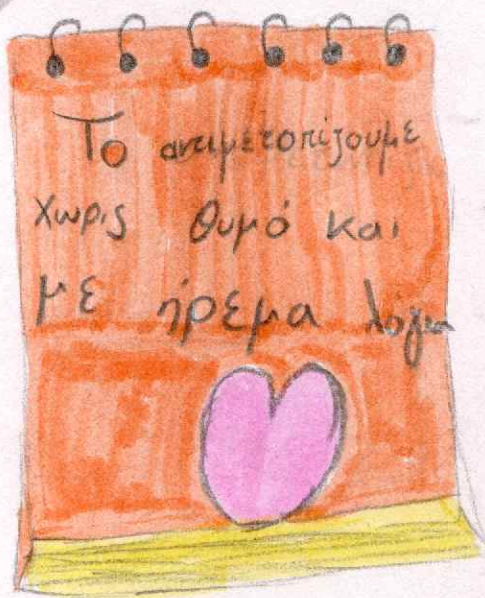 Το αντιμετοπίζουμε
χωρις θυμό και
με ήρεμα λόγια